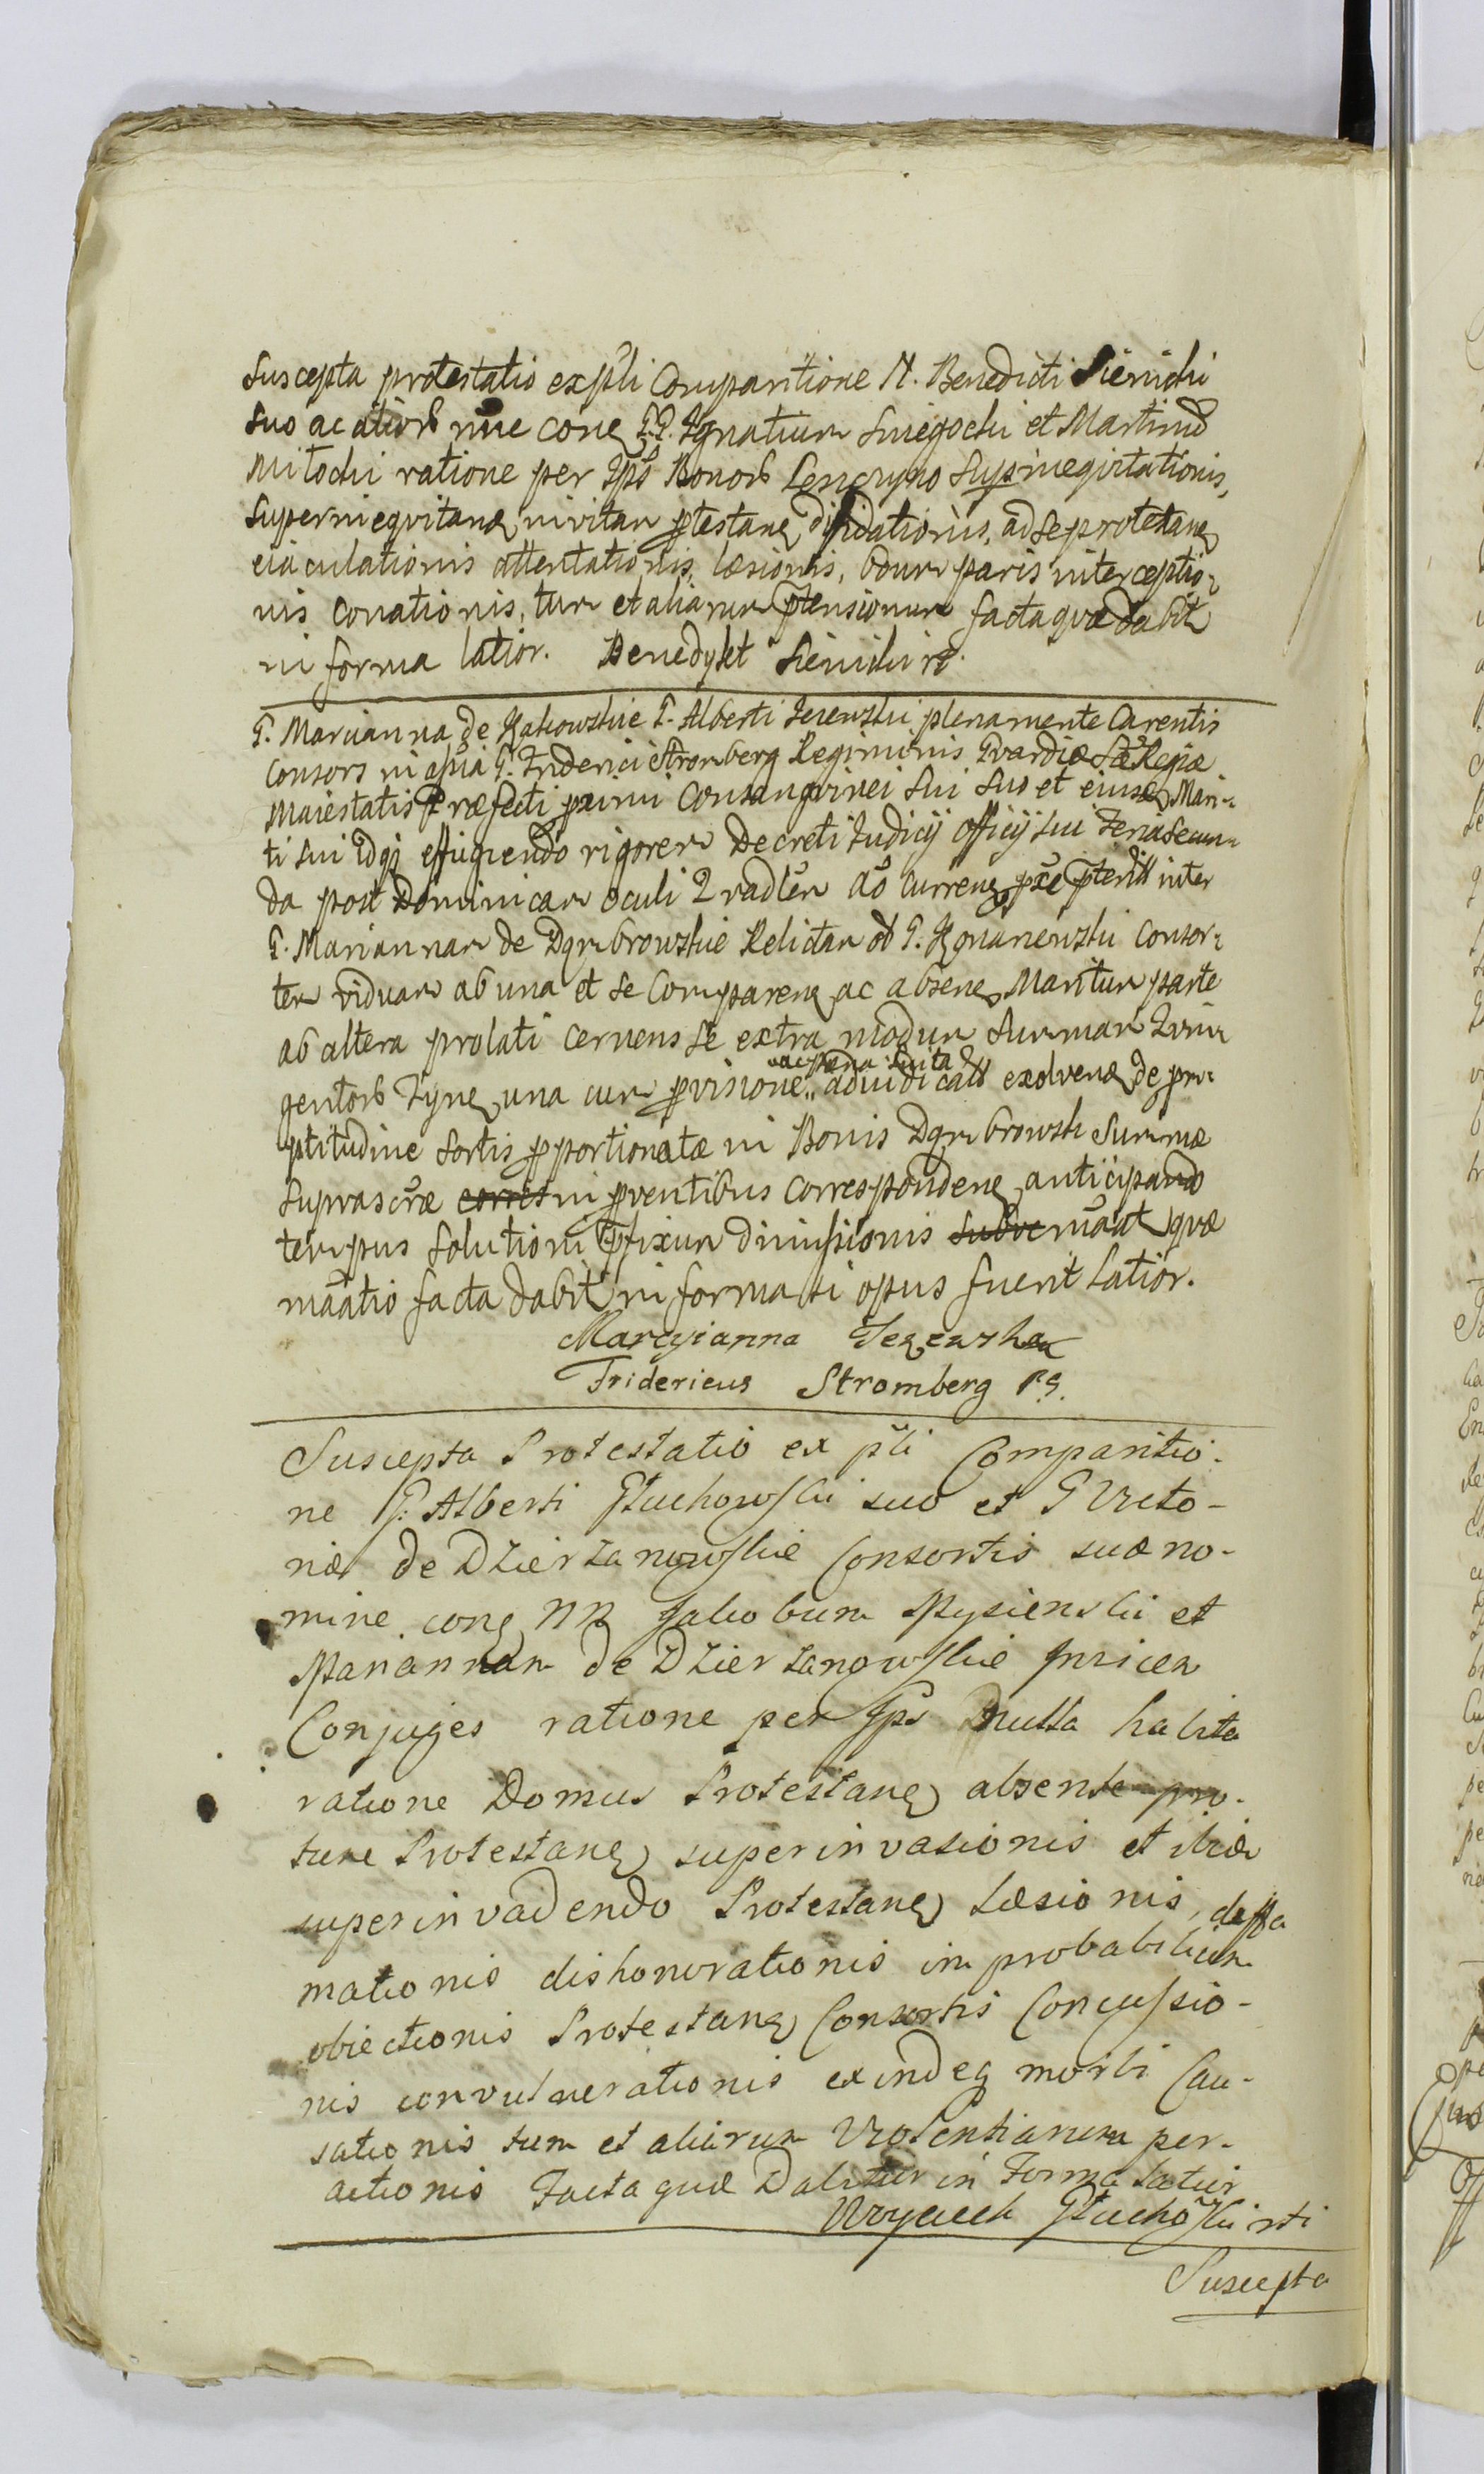 Suscepta protestatio ex pŝti Comparitione N. Benedicti Sienicki
suo ac aliorb nñe cone G.G. Ignatium Smiegocki et Martinũ
Mitocki ratione per Ipŝ Bonorb superineqvitationis,
superineqvitanđ protestane diffidationis, ad se protestane
eiaculationis attentationis, læsionis, eqduum paris interceptio-
nis conationis, tum et aliarum p̃tensionum facta qvæ dabit
in forma latior. Benedykt Sienicki rp
G. Marcianna de Kakowskie G. Alberti Jezewski plenamente Carentis
Consors in aŝia G. Friderici Stromberg Regiminis Gvardiæ Sæ Regiæ
Maiestatis Præfecti p̃ximi Consangvinei sui suo et eiusđ Mari-
ti sui Idqz effugiendo rigorem Decreti Judicij Officij sui Feria secun-
da post Dominicam Oculi Qvadlem Añ currene pxe p̃teriti inter
G. Mariannam de Dąmbrowskie Relictam ol G. Konarzewski Consor-
tem viduam ab una et se Comparene ac absene Maritum parte
ab altera prolati cernens se extra modum Summam Qvin-
gentorb Tyne una cum pvisione ac pœna luita adiudicatã exolvenđ de prom-
ptitudine sortis pportionatæ in Bonis Dąmbrowsk Summæ
suprascræ corres in pventibus Correspondene anticipando
tempus solutioni p̃fixum dimissionis subve mãat qvæ
mãatio facta dabit in forma si opus fuerit latior.
Marcyianna Jezewska
Fridericus Stromberg P.G.
Suscepta Protestatio ex pŝti Comparitio-
ne G. Alberti Głuchowski suo et G Victo-
riæ de Dzierzanowskie Consortis suæ no-
mine cone NN Jakobum Mysienski et
Mariannam de Dzierzanowskie Invicem
Conjuges ratione per Ipŝ nulla habita
ratione Domus Protestane absente pro-
tunc Protestane superinvasionis et ibiđ
superinvadendo Protestane Læsionis, deffa
mationis dishonorationis improbabilium
obiectionis Protestane Consortis Concussio-
nis convulnerationis exindeq morbi Cau-
sationis tum et aliarum Violentiarum per-
actionis Facta quæ Dabitur in Forma latior
Woyciech Głuchoski rti
Suscepta